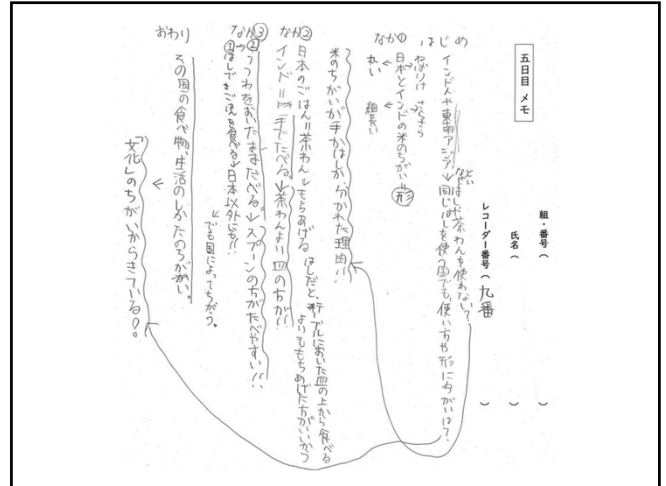 五日目 メモ
組・番号（　　　）
氏名（　　　）
レコーダー番号（九番　　　）
はじめ
インド人や東南アジア→同じはしを使う国でも、使い方や形にちがいは？
などは茶わんを使わない？
なか①
日本とインドの米のちがい＝形
ねばりけ さらさら
丸い 細長い
米のちがいが手かはしか分かれた理由！！
なか②
日本のごはん＝茶わん→もちあげる はしだと、テーブルにおいた皿の上から食べる
よりももちあげた方がいいから
インド＝手でたべる。→茶わんより皿の方が！
なか③
②うつわをおいたままたべる。→スプーンの方がたべやすい！！
①はしでごはんを食べる→日本以外にも！！
でも国によってちがう。
おわり
その国の食べ物、生活のしかたのちがい。
「文化」のちがいからきている？。